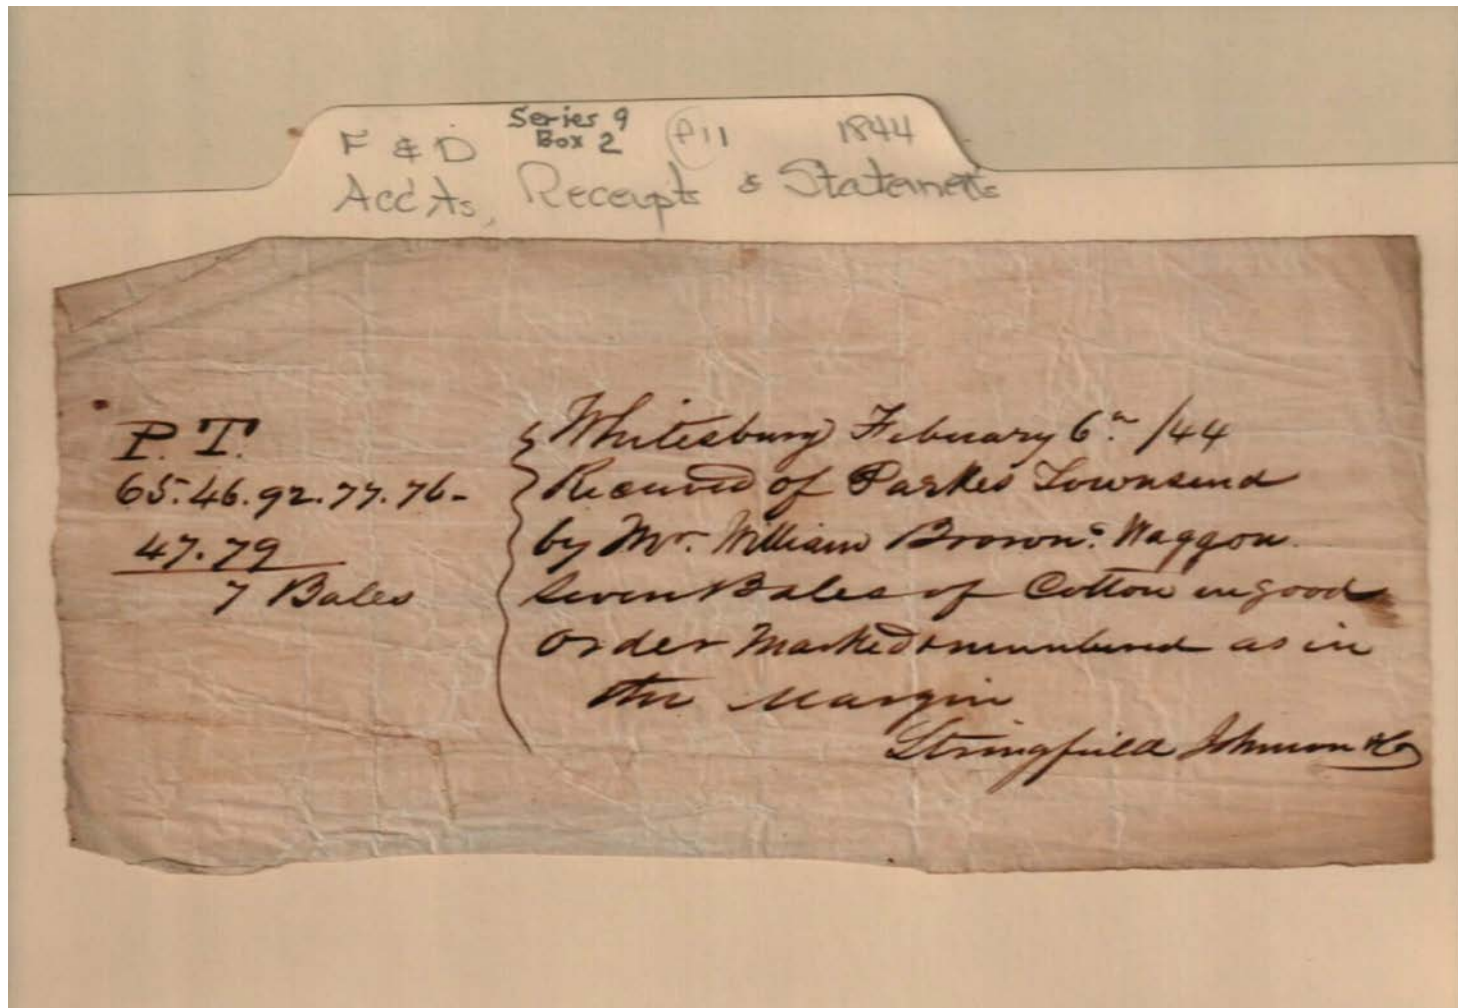 Series 9
F & D Box 2 P11 1844
Acc'ts, Receipts & Statements
P. T.
65. 46. 92. 77. 76 -
47. 79
7 Bales
Whitesburg February 6th /44
Received of Parkes Townsend
by Mr. William Browns Waggon
Seven Bales of Cotton in good
order Marked & numbered as in
the Margin
Stringfield Johnson & Co